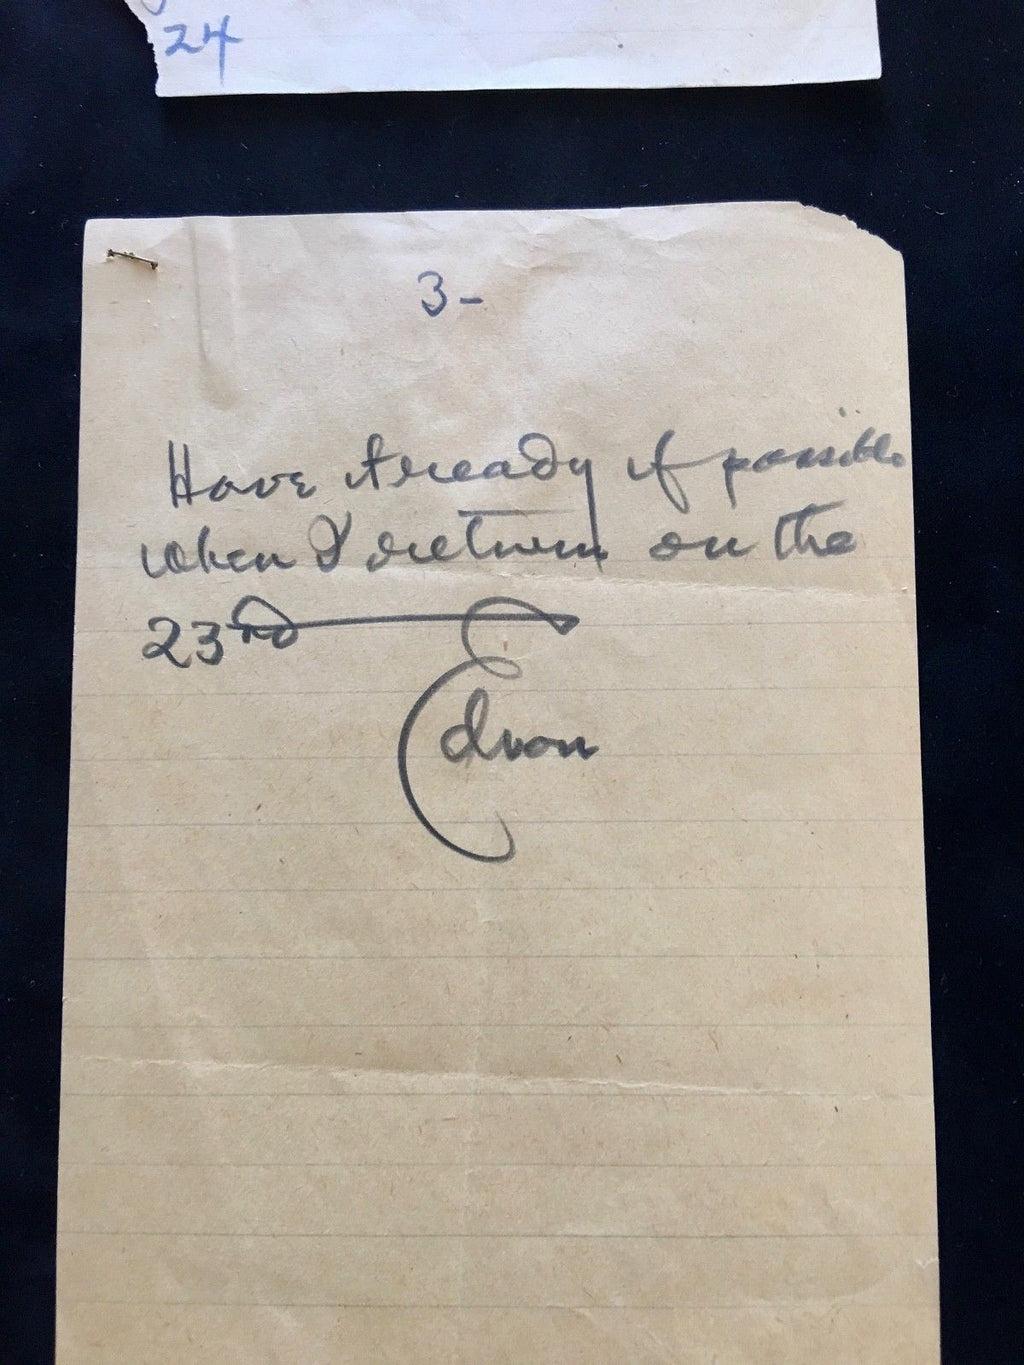 24
3-
Have it ready if possible
when I return on the
23rd
Edison